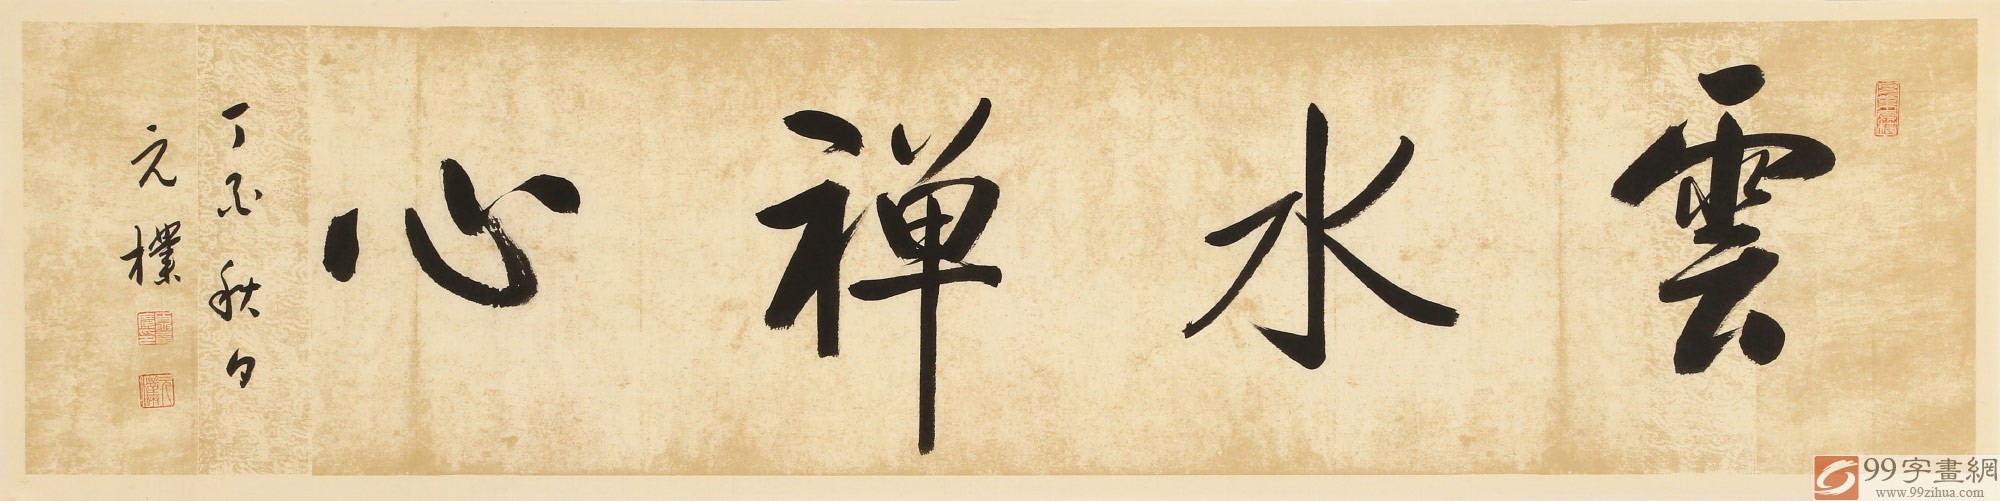 雲水禅心
丁酉秋月
元樸
99字畫網
www.99zihua.com